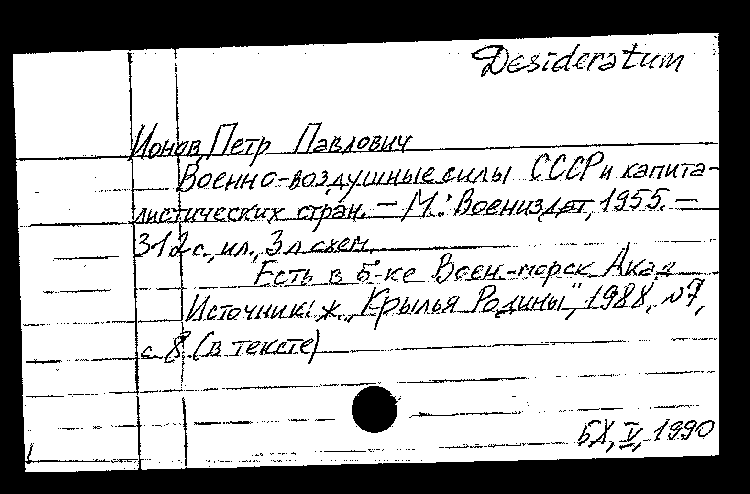 Desideratum
Ионов, Петр Павлович
Военно-воздушные силы СССР и капита-
листических стран. — М.: Воениздат, 1955. —
312 с., ил., 3 л схем.
Есть в б-ке Воен.-морск. Акад
Источник: ж. „Крылья Родины", 1988, №7,
с. 8 (в тексте)
БХ, V, 1990